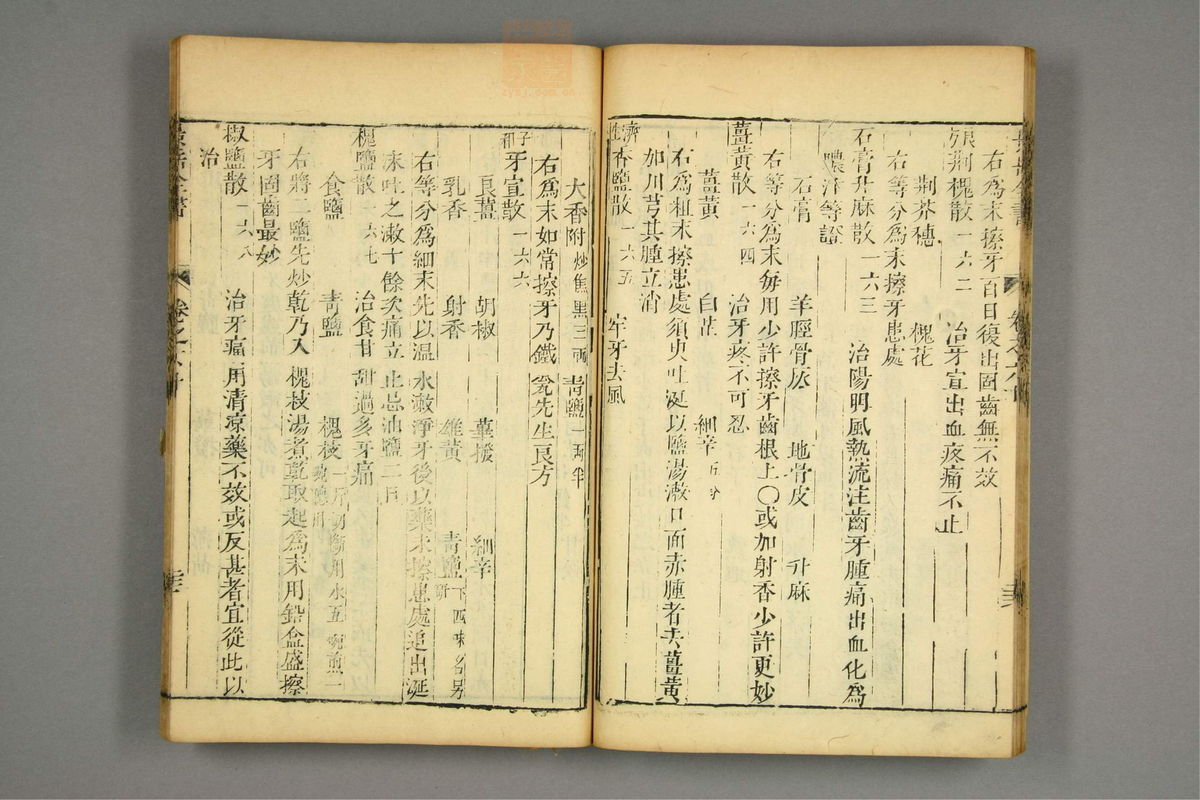 右為末擦牙百日復出固齒無不效
荆槐散一六二　治牙宣出血疼痛不止
荆芥穗　槐花
右等分為末擦牙患處
石膏升麻散一六三　治陽明風熱流注齒牙腫痛出血化為
膿汁等證
石膏　羊脛骨灰　地骨皮　升麻
右等分為末每用少許擦牙齒根上〇或加射香少許更妙
薑黃散一六四　治牙疼不可忍
薑黃　白芷　細辛五分
右為粗末擦患處須臾吐涎以鹽湯漱口面赤腫者去薑黃
加川芎其腫立消
濟生香鹽散一六五　牢牙去風
大香附炒焦黑三兩　青鹽一兩半
右為末如常擦牙乃鐵瓮先生良方
子和牙宣散一六六
良薑　胡椒　蓽撥　細辛
乳香　射香　雄黃　青鹽下四味各另研
右等分為細末先以溫水漱淨牙後以藥末擦患處追出涎
沫吐之漱十餘次痛立止忌油鹽二日
槐鹽散一六七　治食甘甜過多牙痛
食鹽　青鹽　槐枝一斤剉斷用水五碗煎一
右將二鹽先炒乾乃入槐枝湯煮乾取起為末用鉛盒盛擦
牙固齒最妙
椒鹽散一六八　治牙痛用清凉藥不效或反甚者宜從此以
治